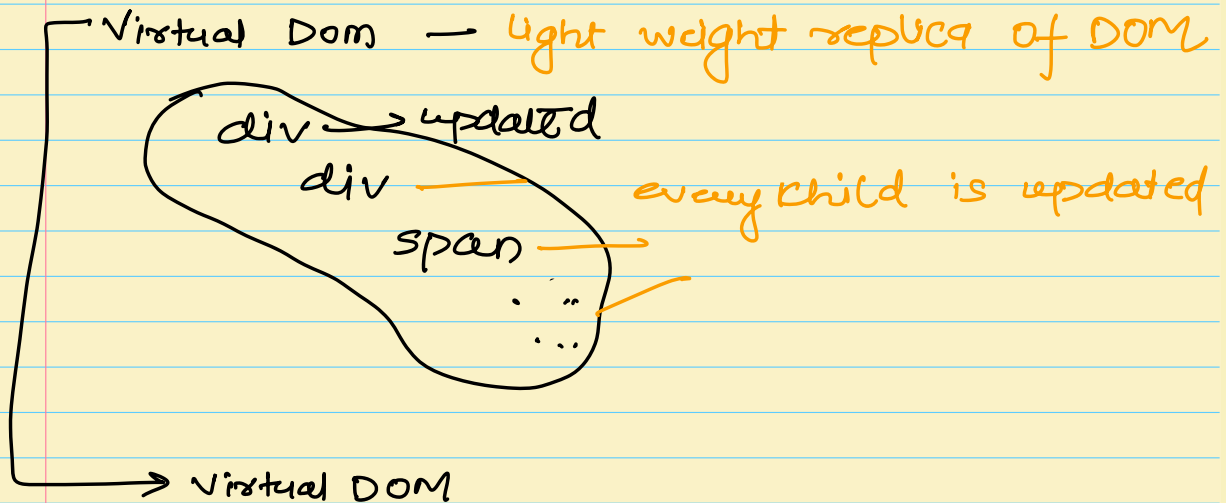 Virtual Dom — light weight replica of DOM
div → updated
div — every child is updated
span →
Virtual DOM